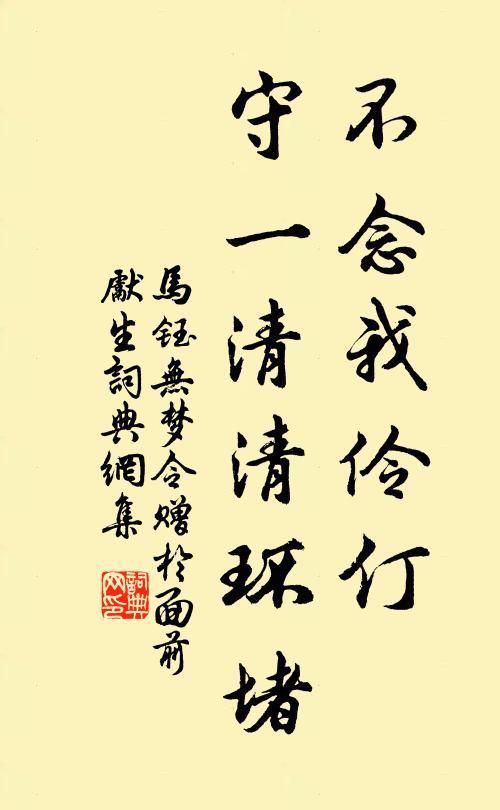 不念我伶仃
守一清清环堵
馬鈺無梦令赠於面前
獻生詞典網集
詞典
网印